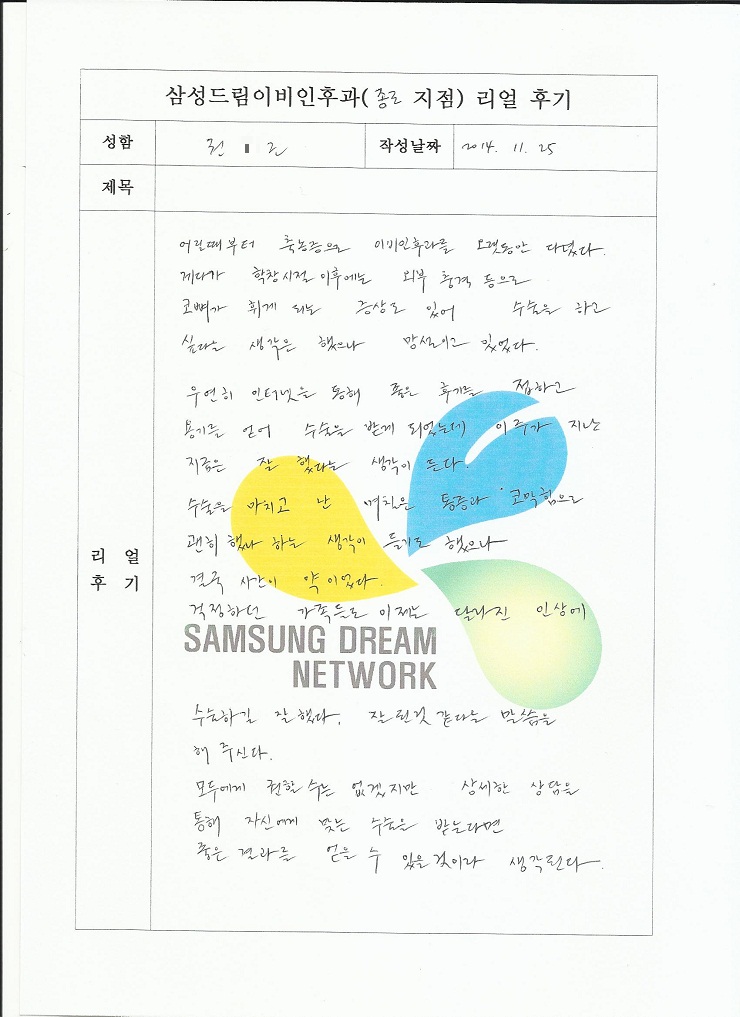 삼성드림이비인후과(종로 지점) 리얼 후기
성함 권 근 작성날짜 2014. 11. 25
제목
어릴때부터 축농증으로 이비인후과를 오랫동안 다녔다.
게다가 학창시절 이후에는 외부 충격 등으로
코뼈가 휘게 되는 증상도 있어 수술을 하고
싶다는 생각은 했으나 망설이고 있었다.
우연히 인터넷을 통해 좋은 후기를 접하고
용기를 얻어 수술을 받게 되었는데 이주가 지난
지금은 잘 했다는 생각이 든다.
수술을 마치고 난 며칠은 통증과 코막힘으로
괜히 했나 하는 생각이 들기도 했으나
결국 시간이 약이었다.
걱정하던 가족들도 이제는 달라진 인상에
리 얼
후 기
SAMSUNG DREAM
NETWORK
수술하길 잘했다, 잘 된것 같다는 말씀을
해 주신다.
모두에게 권할 수는 없겠지만 상세한 상담을
통해 자신에게 맞는 수술을 받는다면
좋은 결과를 얻을 수 있을 것이라 생각된다.